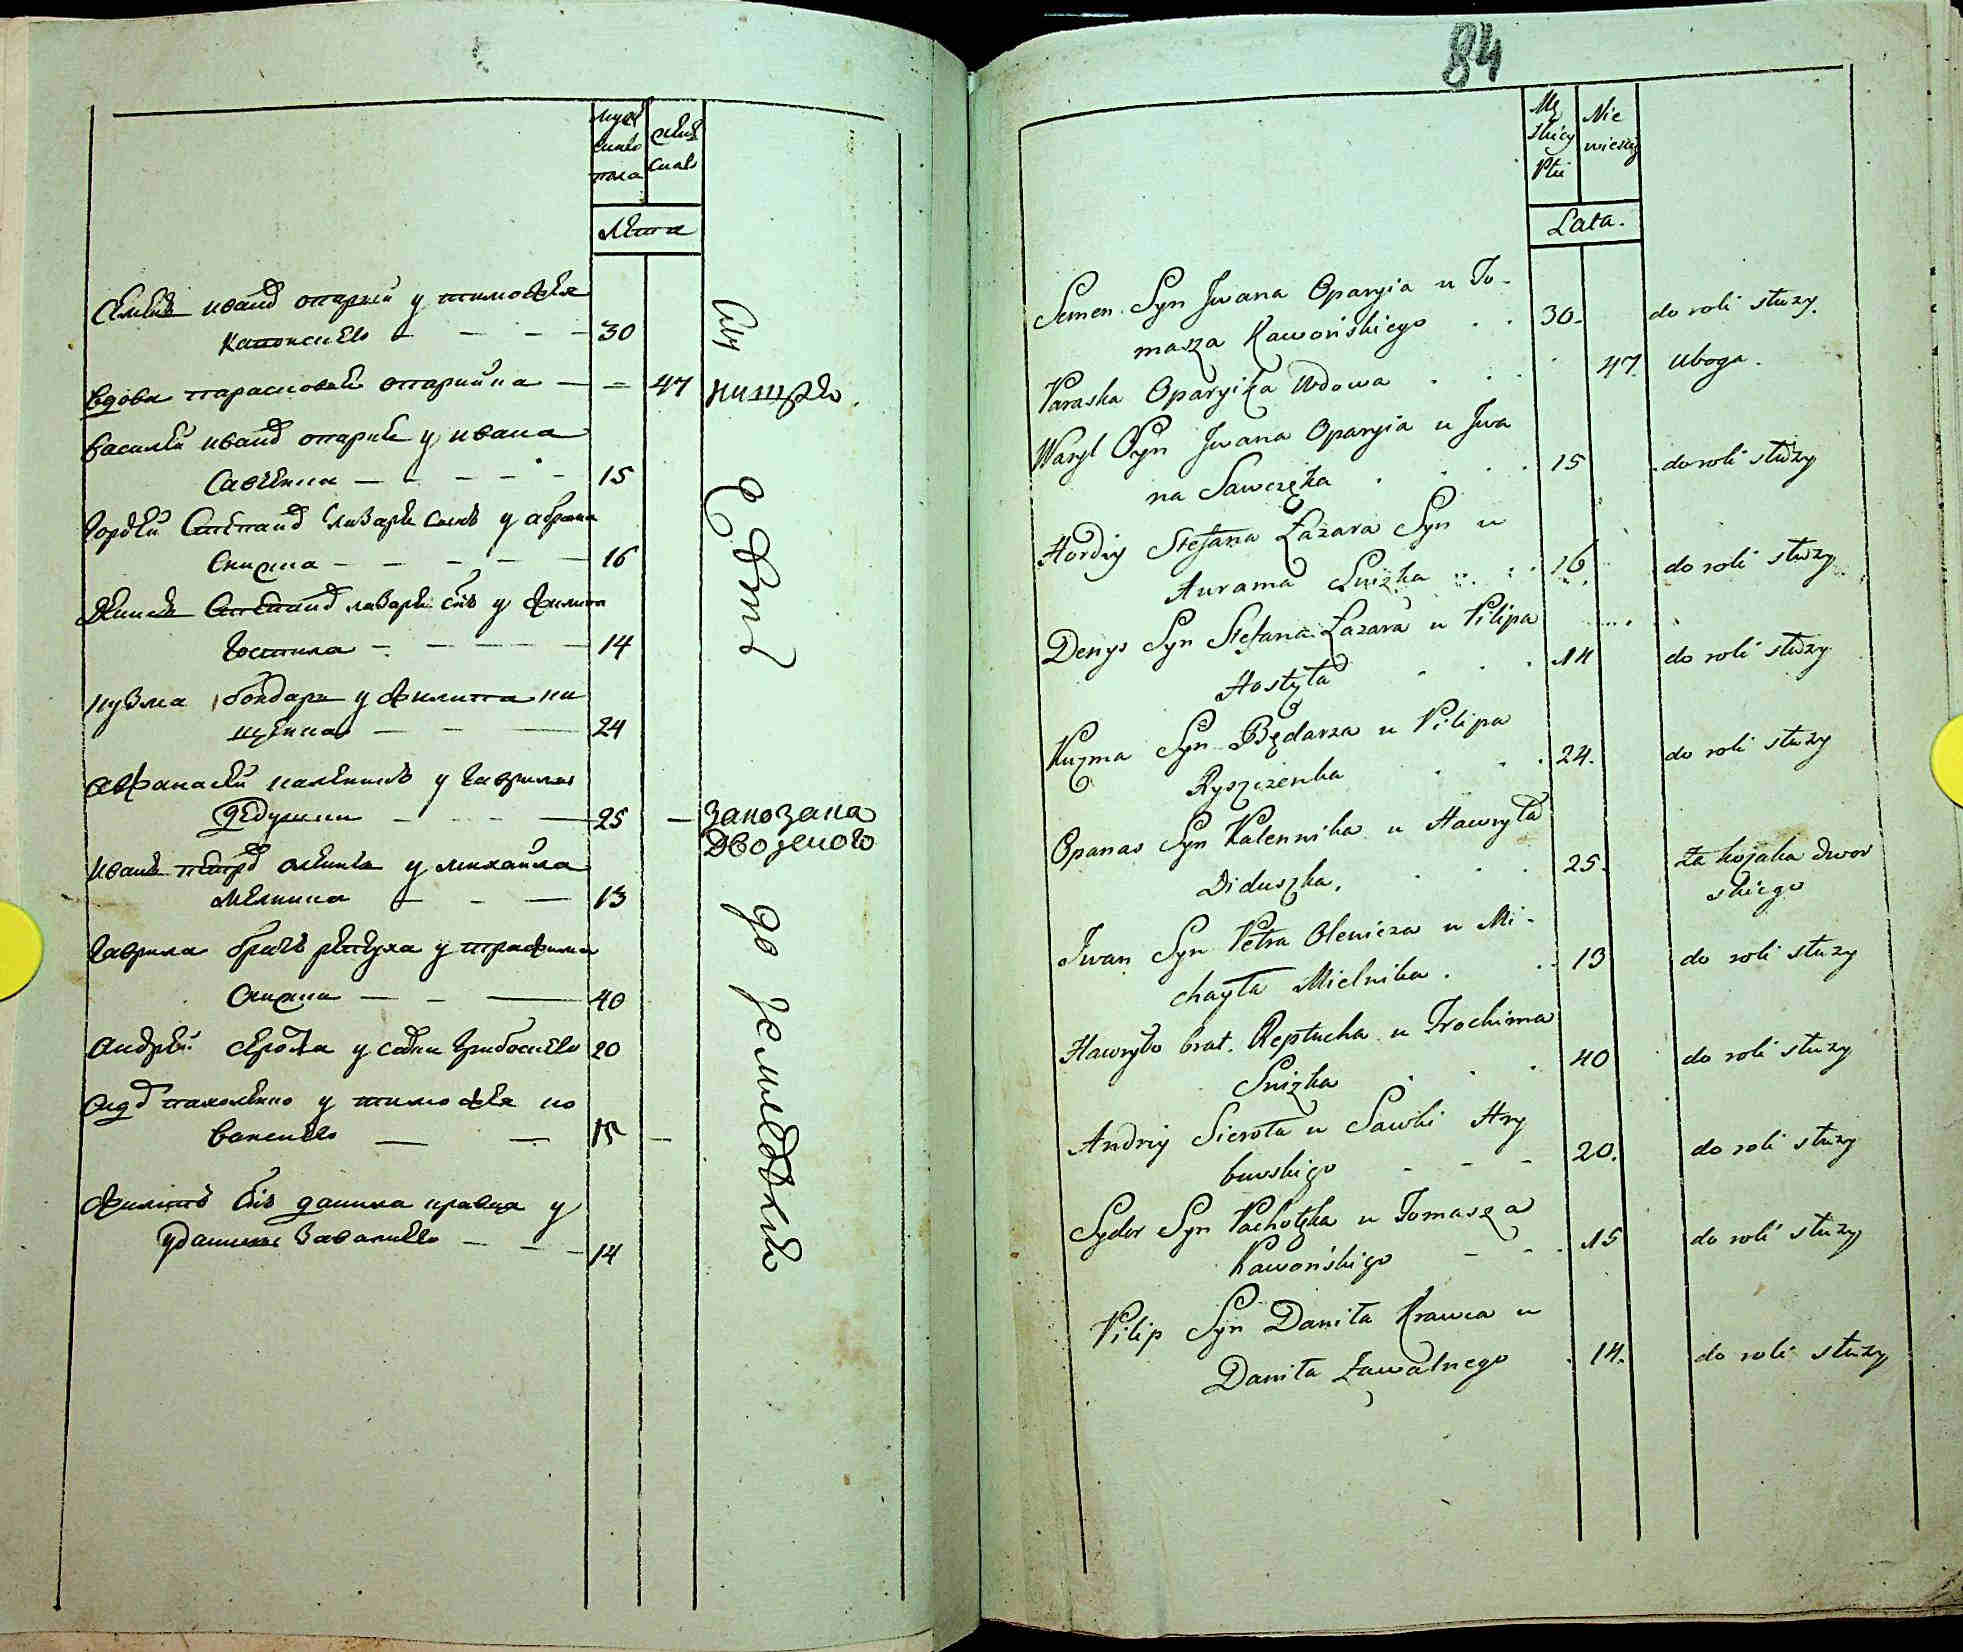 мужс
каго
пола
женс
каго
лета
Семенъ иванд опарии у тимофея
30
вдова парасковея опарийка — — 47 нищая
василей иванд опарии у ивана
Савченка — — — — — 15
гордей Степанд лазаря сынъ у абрама
Снишка — — — — — 16
денисъ Степанд лазаря снъ у филипа
гостила — — — — 14
кузма бондаря у филипа
24
афанасей каленикъ у гаврила
дедушки — — — 25 — за козака
дворского
иванъ петрд у михайла
мелника — — — 13
гаврила братъ рептуха у трофима
снишка — — — 40
андрей сирота у савки грибовского 20
сидд пахолченко у тимофея ко
ванского — — 15 —
филипъ снъ данила кравца у
данила завалнего — — — 14
служитъ до
84
Mę
skiey
Płci
Nie
wieściey
Lata.
Semen Syn Jwana Oparyia u To-
masza Kawońskiego . . 30. do roli służy.
Paraska Oparyika Wdowa . . . 47 Uboga.
Wasyl Syn Jwana Oparyia u Jwa
na Sawczęka . . . . 15 do roli służy
Hordiy Stefana Łazara Syn u
Aurama Snizka . . . 16 do roli służy
Denys Syn Stefana Łazara u Pilipa
Hostyła . . . 14 do roli służy
Kuzma Syn Będarza u Pilipa
Ryszczenka . . . 24. do roli służy
Opanas Syn Kalennika u Hawryła
Diduszka. . . . 25. za kozaka dwor
skiego
Jwan Syn Petra Olenicza u Mi-
chayła Mielnika . . . 13 do roli służy
Hawryło brat Reptucha u Trochima
Snizka . . . 40 do roli służy
Andriy Sierota u Sawki Hry
bowskigo - - - 20. do roli służy
Sydor Syn Pachołka u Tomasza
Kawońskigo - - . 15 do roli służy
Pilip Syn Daniła Krawca u
Daniła Zawalnego . 14. do roli służy